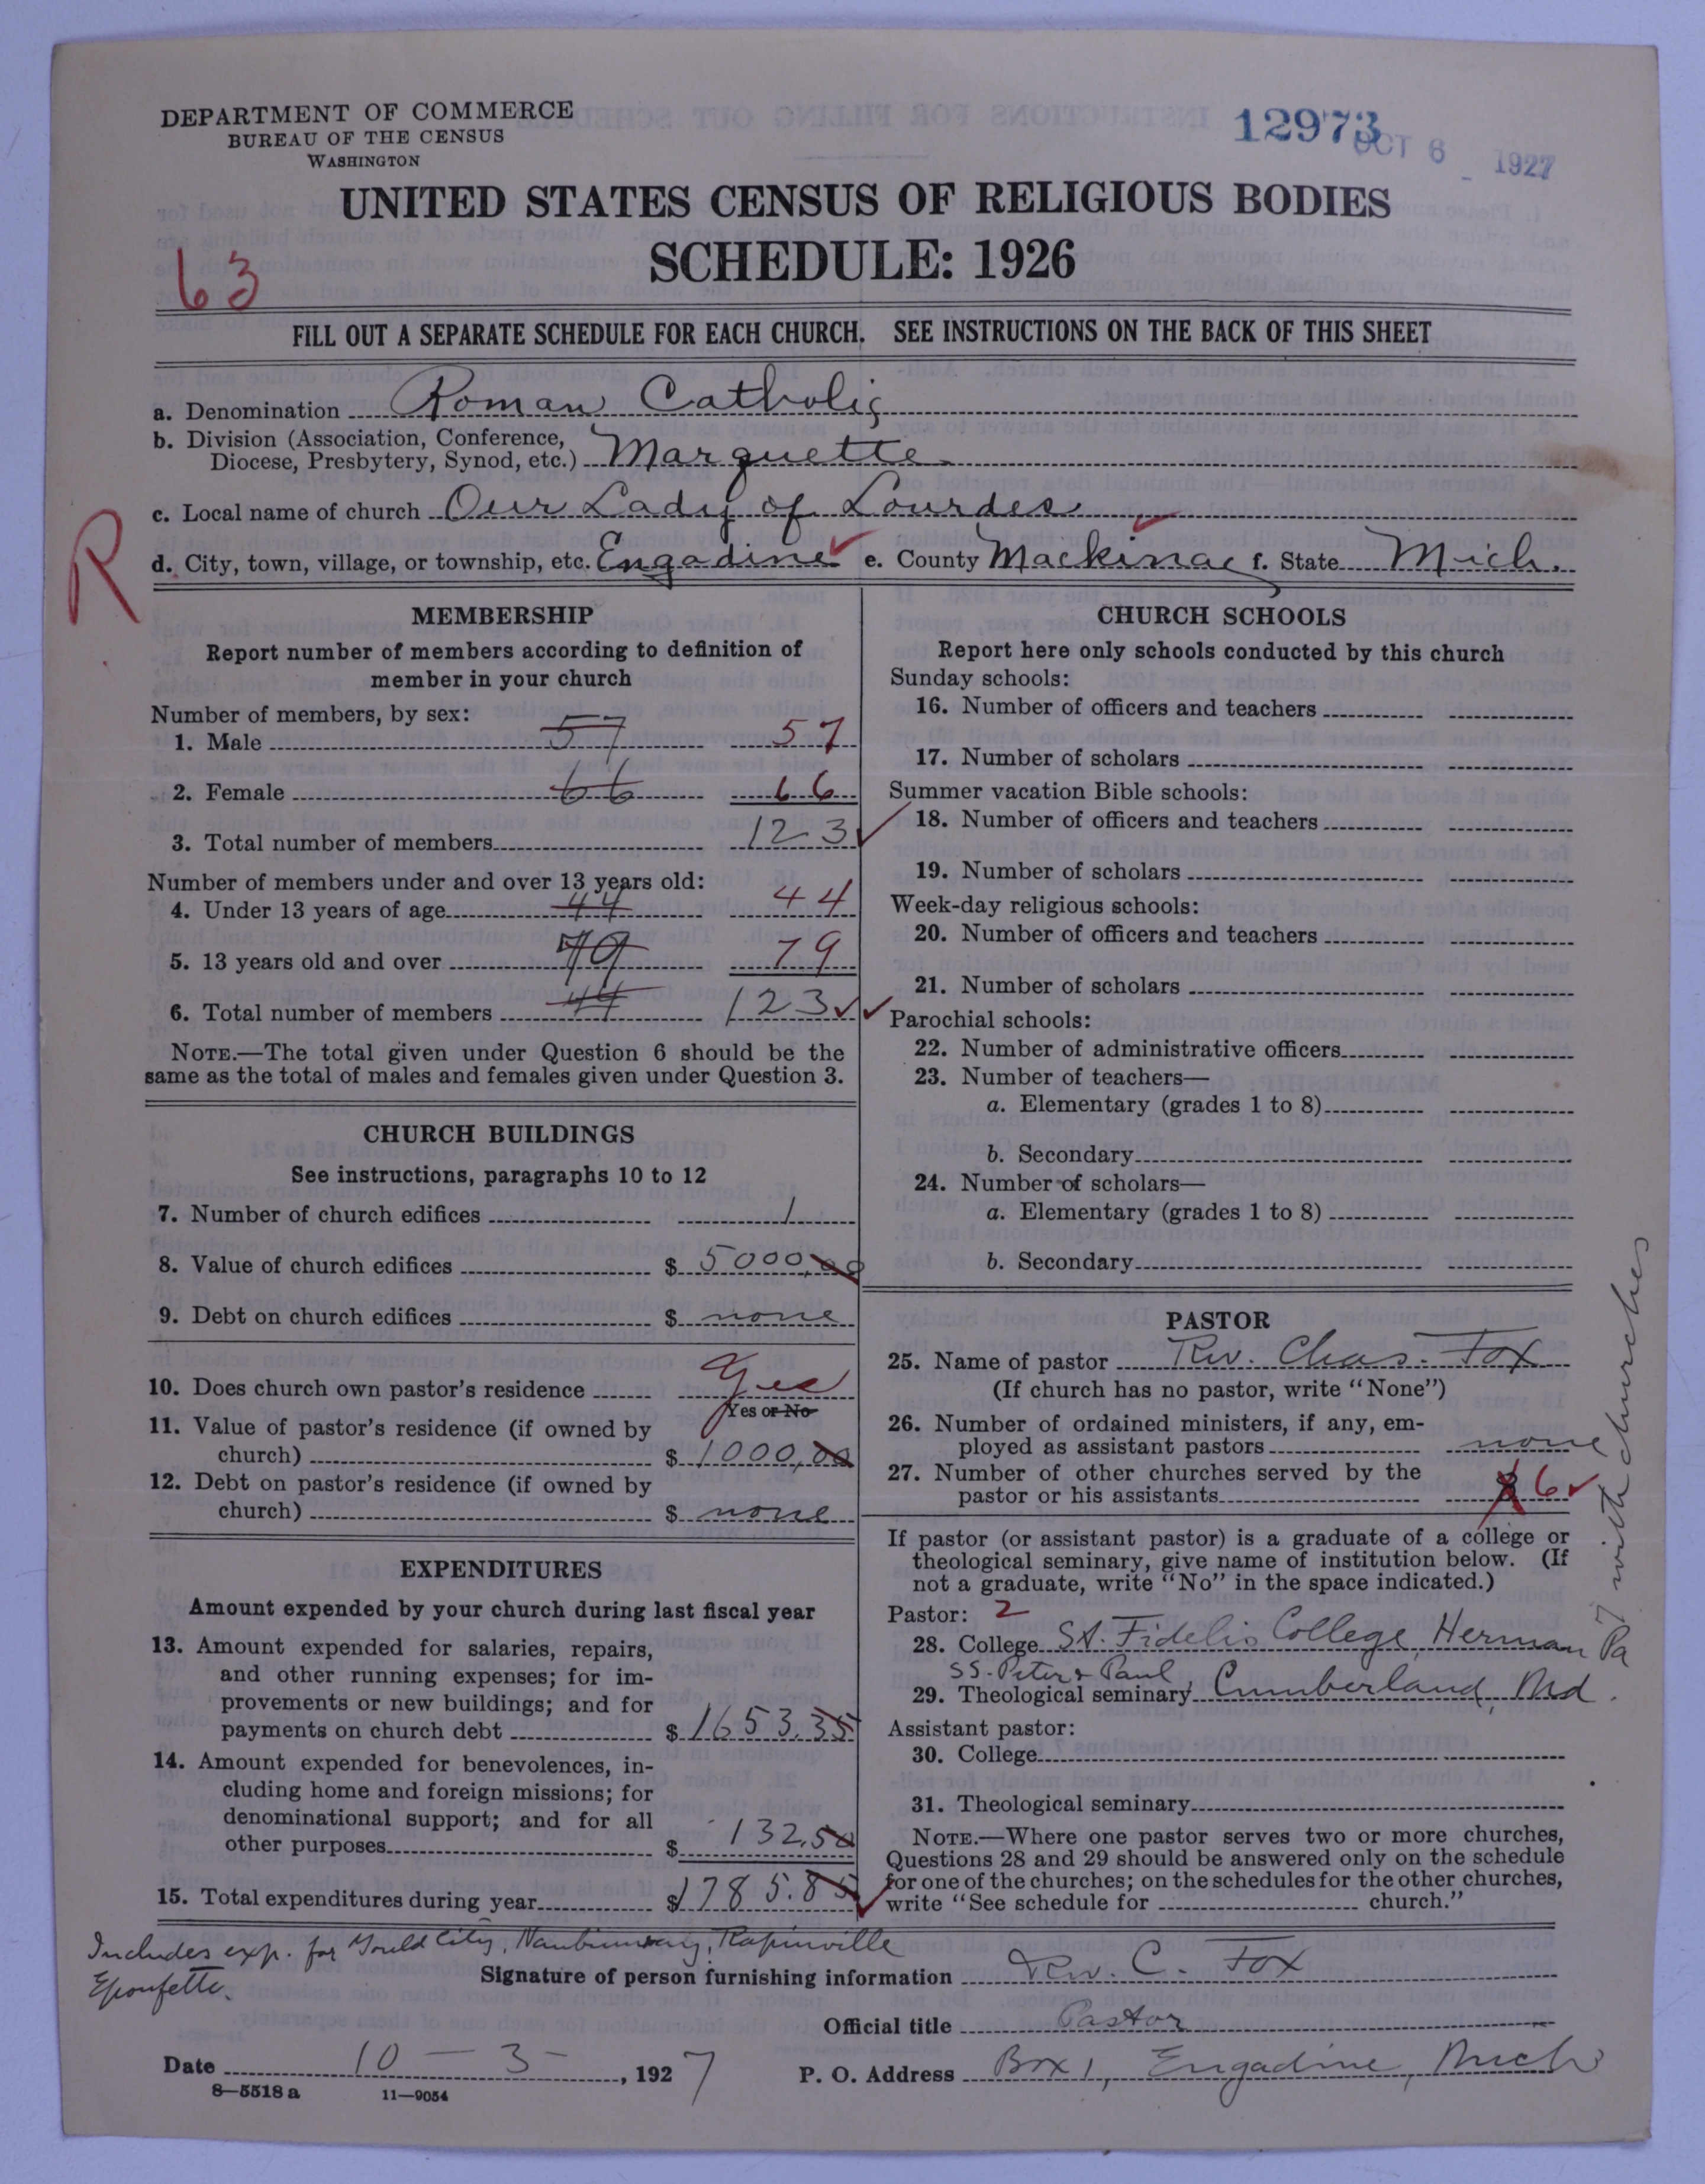 DEPARTMENT OF COMMERCE
BUREAU OF THE CENSUS
WASHINGTON
12973
OCT 6 1927
UNITED STATES CENSUS OF RELIGIOUS BODIES
SCHEDULE: 1926
63
FILL OUT A SEPARATE SCHEDULE FOR EACH CHURCH. SEE INSTRUCTIONS ON THE BACK OF THIS SHEET
a. Denomination Roman Catholic
b. Division (Association, Conference,
Diocese, Presbytery, Synod, etc.) Marquette
c. Local name of church Our Lady of Lourdes
R
d. City, town, village, or township, etc. Engadine e. County Mackinac f. State Mich.
MEMBERSHIP
Report number of members according to definition of
member in your church
Number of members, by sex:
1. Male 57 57
2. Female 66 66
3. Total number of members 123
Number of members under and over 13 years old:
4. Under 13 years of age 44 44
5. 13 years old and over 79 79
6. Total number of members 44 123
NOTE.—The total given under Question 6 should be the
same as the total of males and females given under Question 3.
CHURCH BUILDINGS
See instructions, paragraphs 10 to 12
7. Number of church edifices 1
8. Value of church edifices $ 5000,00
9. Debt on church edifices $ none
10. Does church own pastor's residence Yes
Yes or No
11. Value of pastor's residence (if owned by
church) $ 1000,00
12. Debt on pastor's residence (if owned by
church) $ none
EXPENDITURES
Amount expended by your church during last fiscal year
13. Amount expended for salaries, repairs,
and other running expenses; for im-
provements or new buildings; and for
payments on church debt $ 1653.35
14. Amount expended for benevolences, in-
cluding home and foreign missions; for
denominational support; and for all
other purposes $ 132.50
15. Total expenditures during year $ 1785.85
CHURCH SCHOOLS
Report here only schools conducted by this church
Sunday schools:
16. Number of officers and teachers
17. Number of scholars
Summer vacation Bible schools:
18. Number of officers and teachers
19. Number of scholars
Week-day religious schools:
20. Number of officers and teachers
21. Number of scholars
Parochial schools:
22. Number of administrative officers
23. Number of teachers—
a. Elementary (grades 1 to 8)
b. Secondary
24. Number of scholars—
a. Elementary (grades 1 to 8)
b. Secondary
PASTOR
25. Name of pastor Rev. Chas. Fox
(If church has no pastor, write "None")
26. Number of ordained ministers, if any, em-
ployed as assistant pastors none
27. Number of other churches served by the
pastor or his assistants 6
7 with churches
If pastor (or assistant pastor) is a graduate of a college or
theological seminary, give name of institution below. (If
not a graduate, write "No" in the space indicated.)
Pastor: 2
28. College St. Fidelis College, Herman Pa
SS. Peter & Paul
29. Theological seminary Cumberland, Md.
Assistant pastor:
30. College
31. Theological seminary
NOTE.—Where one pastor serves two or more churches,
Questions 28 and 29 should be answered only on the schedule
for one of the churches; on the schedules for the other churches,
write "See schedule for church."
Includes exp. for Gould City, Naubinway, Rapinville
Epoufette.
Signature of person furnishing information Rev. C. Fox
Official title Pastor
Date 10 - 3 - , 1927 P. O. Address Box 1, Engadine, Mich
8—5518 a 11—9054